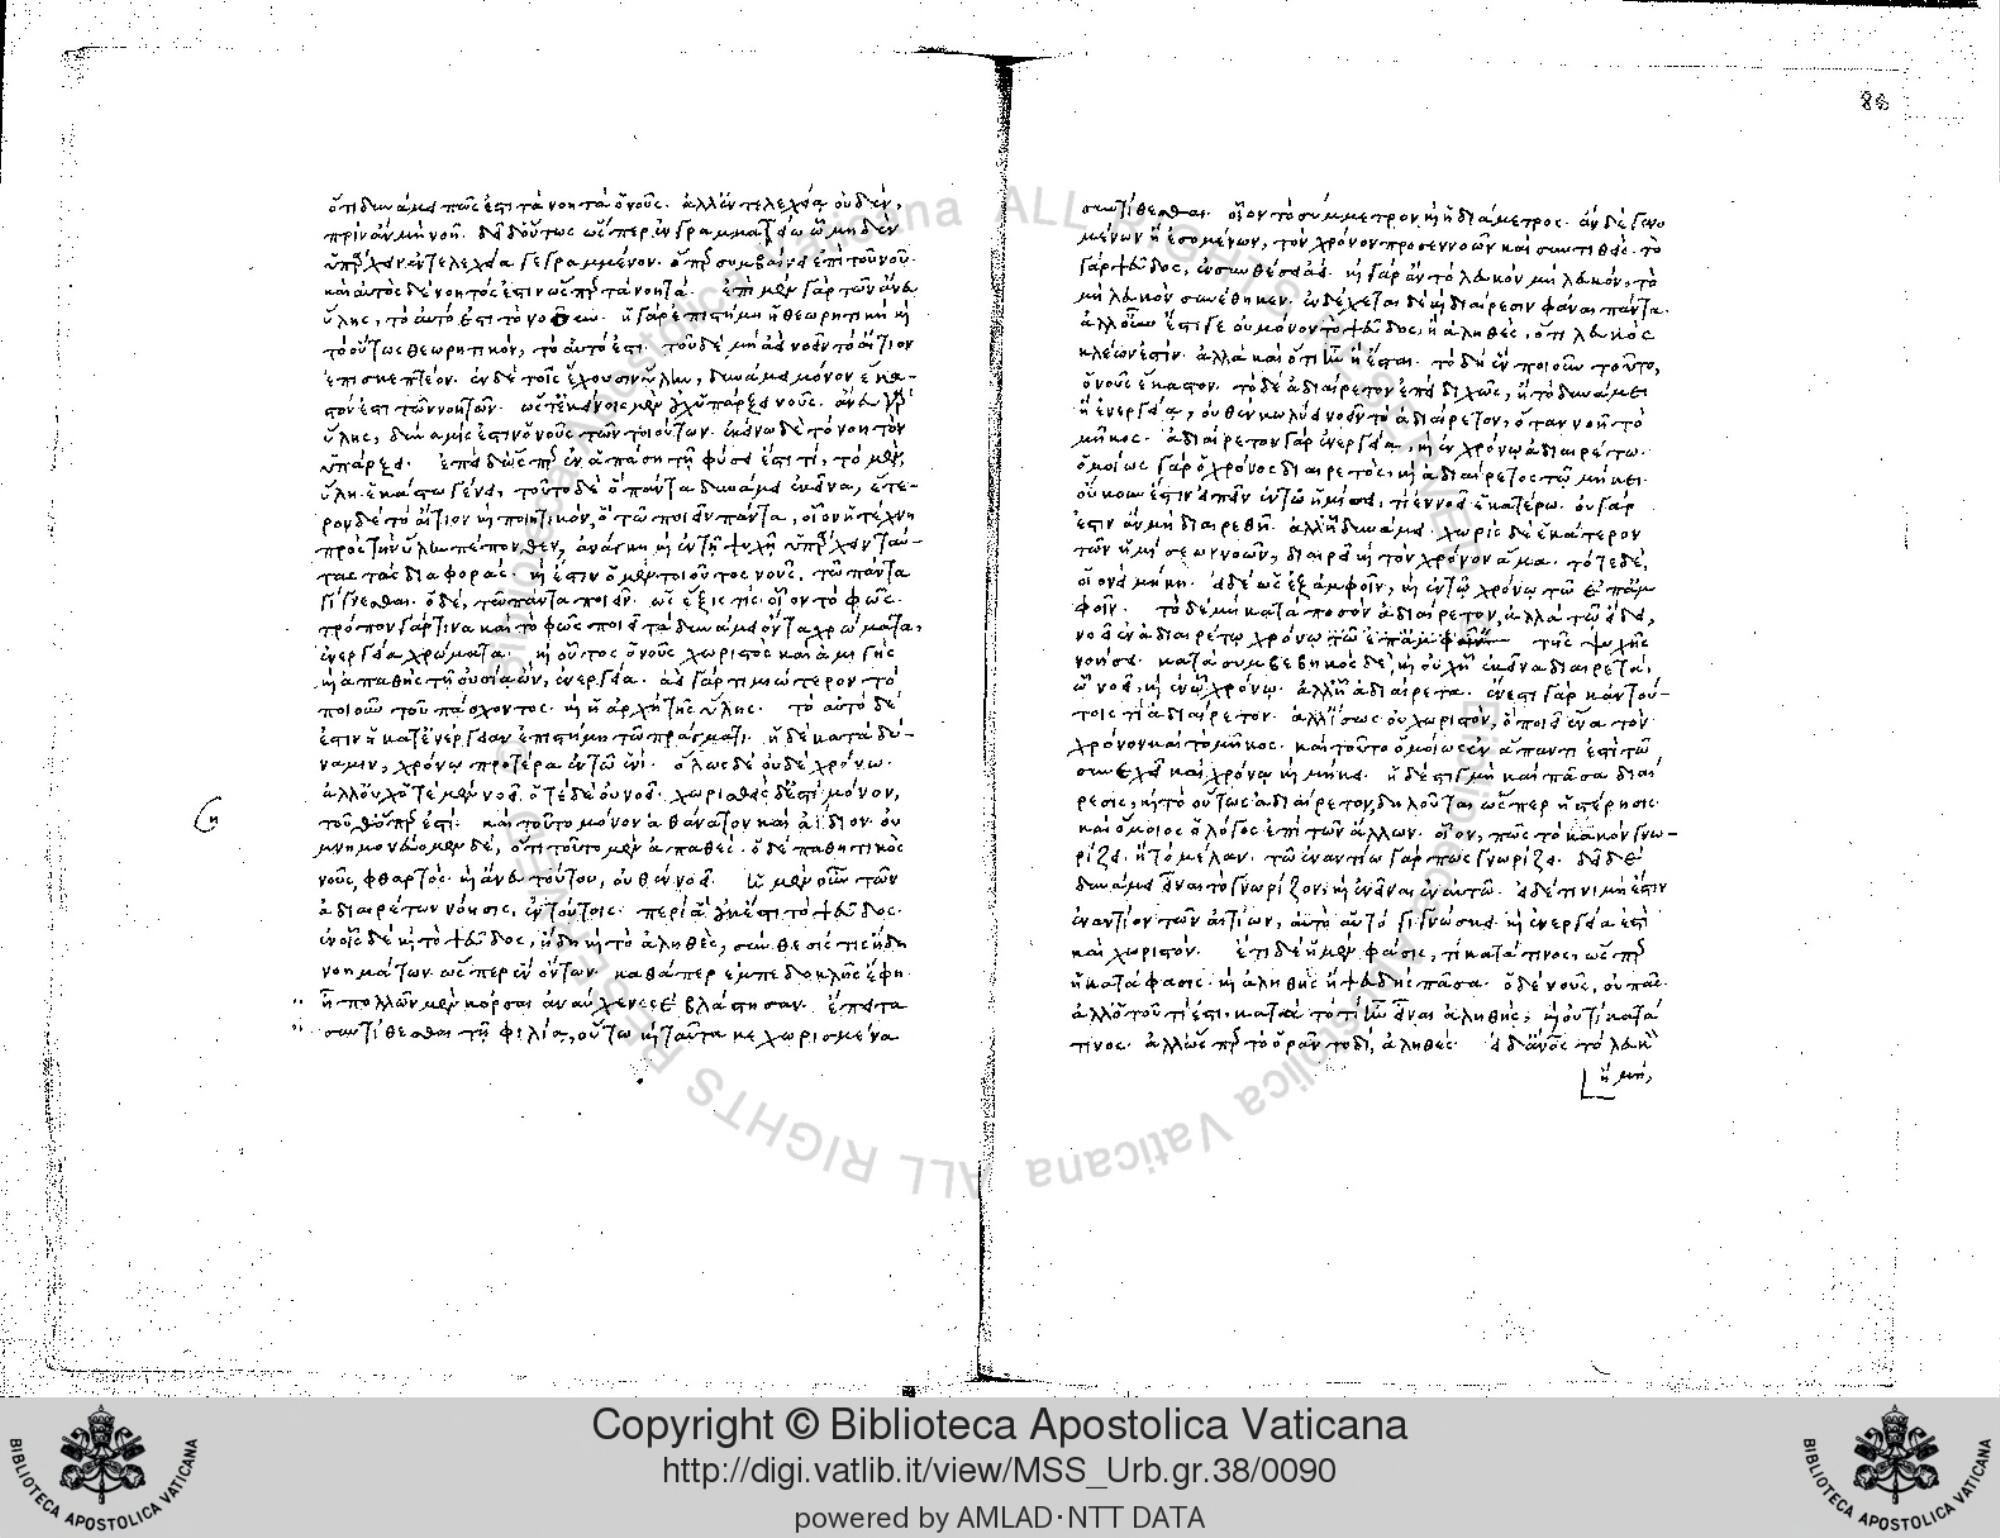 ὅτι δυνάμει πῶς ἐστι τὰ νοητὰ ὁ νοῦς. ἀλλ' ἐντελεχείᾳ οὐδὲν,
πρὶν ἂν μὴ νοῇ. δεῖ δ' οὕτως ὥσπερ ἐν γραμματείῳ ᾧ μηδὲν
ὑπάρχει ἐντελεχείᾳ γεγραμμένον. ὅπερ συμβαίνει ἐπὶ τοῦ νοῦ.
καὶ αὐτὸς δὲ νοητός ἐστιν ὥσπερ τὰ νοητά. ἐπὶ μὲν γὰρ τῶν ἄνευ
ὕλης, τὸ αὐτό ἐστι τὸ ἡ γὰρ ἐπιστήμη ἡ θεωρητικὴ καὶ
τὸ οὕτως θεωρητικὸν, τὸ αὐτό ἐστι. τοῦ δὲ μὴ ἀεὶ νοεῖν τὸ αἴτιον
ἐπισκεπτέον. ἐν δὲ τοῖς ἔχουσιν ὕλην, δυνάμει μόνον ἕκα-
στόν ἐστι τῶν νοητῶν. ὥστ' ἐκείνοις μὲν οὐχ ὑπάρξει νοῦς. ἄνευ γὰρ
ὕλης, δύναμις ἐστιν ὁ νοῦς τῶν τοιούτων. ἐκείνω δὲ τὸ νοητὸν
ὑπάρξει. ἐπεὶ δ' ὥσπερ ἐν ἁπάσῃ τῇ φύσει ἐστί τι, τὸ μὲν,
ὕλη ἑκάστω γένει, τοῦτο δὲ ὃ πάντα δυνάμει ἐκεῖνα, ἕτε-
ρον δὲ τὸ αἴτιον καὶ ποιητικὸν, ὃ τῶ ποιεῖν πάντα, οἷον ἡ τέχνη
πρὸς τὴν ὕλην πέπονθεν, ἀνάγκη καὶ ἐν τῇ ψυχῇ ὑπάρχειν ταύ-
τας τὰς διαφοράς. καὶ ἔστιν ὁ μὲν τοιοῦτος νοῦς, τῶ πάντα
γίγνεσθαι. ὁ δὲ, τῶ πάντα ποιεῖν. ὡς ἕξις τίς. οἷον τὸ φῶς.
τρόπον γάρ τινα καὶ τὸ φῶς ποιεῖ τὰ δυνάμει ὄντα χρώματα,
ἐνεργείᾳ χρώματα. καὶ οὗτος ὁ νοῦς χωριστὸς καὶ ἀμιγὴς
καὶ ἀπαθὴς τῇ οὐσίᾳ ὢν, ἐνεργείᾳ. ἀεὶ γὰρ τιμιώτερον τὸ
ποιοῦν τοῦ πάσχοντος. καὶ ἡ ἀρχὴ τῆς ὕλης. τὸ αὐτὸ δέ
ἐστιν ἡ κατ' ἐνέργειαν ἐπιστήμη τῶ πράγματι. ἡ δὲ κατὰ δύ-
ναμιν, χρόνῳ προτέρα ἐν τῶ ἑνί. ὅλως δὲ οὐδὲ χρόνω.
ἀλλ' οὐχ ὁτὲ μὲν νοεῖ, ὁτὲ δὲ οὐ νοεῖ. χωρισθεὶς δ' ἐστὶ μόνον,
τοῦθ' ὅπερ ἐστί. καὶ τοῦτο μόνον ἀθάνατον καὶ ἀΐδιον. οὐ
μνημονεύομεν δέ, ὅτι τοῦτο μὲν ἀπαθές. ὁ δὲ παθητικὸς
νοῦς, φθαρτός. καὶ ἄνευ τούτου, οὐθὲν νοεῖ. ἡ μὲν οὖν τῶν
ἀδιαιρέτων νόησις, ἐν τούτοις. περὶ ἃ οὐκ ἔστι τὸ ψεῦδος.
ἐν οἷς δὲ καὶ τὸ ψεῦδος, ἤδη καὶ τὸ ἀληθὲς, σύνθεσίς τις ἤδη
νοημάτων ὥσπερ ἓν ὄντων. καθάπερ ἐμπεδοκλῆς ἔφη
ᾗ πολλῶν μὲν κόρσαι ἀναύχενες ἐβλάστησαν. ἔπειτα
συντίθεσθαι τῇ φιλίᾳ, οὕτω καὶ ταῦτα κεχωρισμένα
86
συντίθεσθαι. οἷον τὸ σύμμετρον καὶ ἡ διάμετρος. ἂν δὲ γενο
μένων ἢ ἐσομένων, τὸν χρόνον προσεννοῶν καὶ συντιθείς. τὸ
γὰρ ψεῦδος, ἐν συνθέσει ἀεί. καὶ γὰρ ἂν τὸ λευκὸν μὴ λευκόν, τὸ
μὴ λευκὸν συνέθηκεν. ἐνδέχεται δὲ καὶ διαίρεσιν φάναι πάντα.
ἀλλ' οὖν ἔστι γε οὐ μόνον τὸ ψεῦδος, ἢ ἀληθὲς, ὅτι λευκὸς
κλέων ἐστίν. ἀλλὰ καὶ ὅτι ἦν ἢ ἔσται. τὸ δὲ ἓν ποιοῦν τοῦτο,
ὁ νοῦς ἕκαστον. τὸ δὲ ἀδιαίρετον ἐπεὶ διχῶς, ἢ τὸ δυνάμει
ἢ ἐνεργείᾳ, οὐθὲν κωλύει νοεῖν τὸ ἀδιαίρετον, ὅταν νοῇ τὸ
μῆκος. ἀδιαίρετον γὰρ ἐνεργείᾳ, καὶ ἐν χρόνῳ ἀδιαιρέτω.
ὁμοίως γὰρ ὁ χρόνος διαιρετὸς, καὶ ἀδιαίρετος τῷ μήκει.
οὔκουν ἔστιν εἰπεῖν ἐν τῶ ἡμίσει, τί ἐννοεῖ ἑκατέρω. οὐ γάρ
ἐστιν ἂν μὴ διαιρεθῇ. ἀλλ' ἢ δυνάμει. χωρὶς δὲ ἑκάτερον
τῶν ἡμίσεων νοῶν, διαιρεῖ καὶ τὸν χρόνον ἅμα. τότε δὲ,
οἱονεὶ μήκη. εἰ δὲ ὡς ἐξ ἀμφοῖν, καὶ ἐν τῷ χρόνῳ τῶ ἐπ' ἀμ
φοῖν. τὸ δὲ μὴ κατὰ ποσὸν ἀδιαίρετον, ἀλλὰ τῶ εἴδει,
νοεῖ ἐν ἀδιαιρέτῳ χρόνῳ τῶ ἐπ' ἀμφοῖν τῆς ψυχῆς
νοήσει. κατὰ συμβεβηκὸς δὲ, καὶ οὐχ ᾗ ἐκεῖνα διαιρετὰ,
ᾧ νοεῖ, καὶ ἐν ᾧ χρόνῳ. ἀλλ' ᾗ ἀδιαίρετα. ἔνεστι γὰρ κἀν τού-
τοις τὶ ἀδιαίρετον. ἀλλ' ἴσως οὐ χωριστὸν, ὃ ποιεῖ ἕνα τὸν
χρόνον καὶ τὸ μῆκος. καὶ τοῦτο ὁμοίως ἐν ἅπαντι ἐστὶ τῶ
συνεχεῖ καὶ χρόνῳ καὶ μήκει. ἡ δὲ στιγμὴ καὶ πᾶσα διαί
ρεσις, καὶ τὸ οὕτως ἀδιαίρετον, δηλοῦται ὥσπερ ἡ στέρησις.
καὶ ὅμοιος ὁ λόγος ἐπὶ τῶν ἄλλων. οἷον, πῶς τὸ κακὸν γνω-
ρίζει ἢ τὸ μέλαν. τῶ ἐναντίω γάρ πως γνωρίζει. δεῖ δὲ
δυνάμει εἶναι τὸ γνωρίζον, καὶ ἐνεῖναι ἐν αὐτῶ. εἰ δέ τινι μή ἐστιν
ἐναντίον τῶν αἰτίων, αὐτὸ αὑτὸ γιγνώσκει καὶ ἐνεργείᾳ ἐστὶ
καὶ χωριστόν. ἔστι δὲ ἡ μὲν φάσις, τὶ κατά τινος, ὥσπερ
ἡ κατάφασις. καὶ ἀληθὴς ἢ ψευδὴς πᾶσα. ὁ δὲ νοῦς, οὐ πᾶς.
ἀλλ' ὁ τοῦ τί ἐστι κατὰ τὸ τί ἦν εἶναι ἀληθής, καὶ οὐ τὶ κατά
τινος. ἀλλ' ὥσπερ τὸ ὁρᾶν τοῦ ἰδίου, ἀληθές. εἰ δ' ἄνθρωπος τὸ λευκὸν
ἢ μή,
Copyright © Biblioteca Apostolica Vaticana
http://digi.vatlib.it/view/MSS_Urb.gr.38/0090
powered by AMLAD·NTT DATA